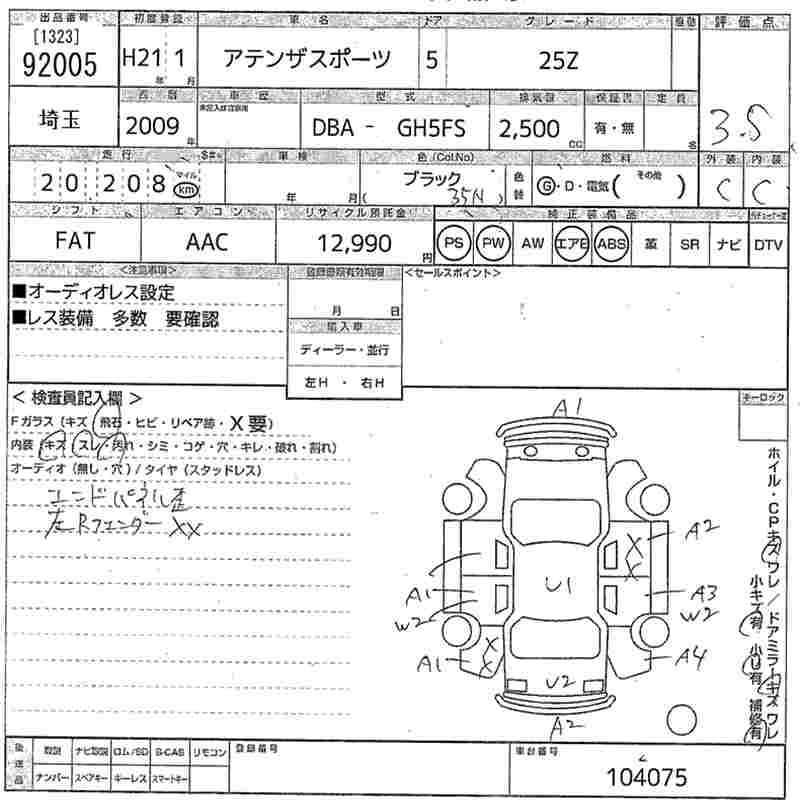 出品番号 初度登録 車名 ドア グレード 車歴 評価点
[1323]
92005 H21 1 アテンザスポーツ 5 25Z
年 月
埼玉 西暦 車歴 型式 排気量 保証書 定員 3.5
2009 年 DBA - GH5FS 2,500 CC 有・無 名
走行 S# 車検 色(Col.No) 燃料 外装 内装
20,208 マイル km 年 月 ブラック ( 35N ) 色替 G・D・電気( その他 ) C C
シフト エアコン リサイクル預託金 純正装備品
FAT AAC 12,990 円 PS PW AW エアB ABS 革 SR ナビ DTV
<注意事項> 登録書類有効期限 <セールスポイント>
■オーディオレス設定
■レス装備 多数 要確認
月 日
輸入車
ディーラー・並行
左H ・ 右H
< 検査員記入欄 >
Fガラス (キズ 飛石・ヒビ・リペア跡・X要)
内装 (キズ スレ 汚れ・シミ・コゲ・穴・キレ・破れ・割れ)
オーディオ (無し・穴) / タイヤ (スタッドレス)
エンドパネル歪
左Rフェンダー XX
キーロック
A1
X X A2
A1 W2
U1
A3 W2
X X
A1
A4
U2
A2
ホイル・CPキズ ワレ / ドアミラーキズ ワレ
小キズ有 小U有 補修有
後送品 取説 ナビ取説 ロム/SD B-CAS リモコン 登録番号 車台番号
ナンバー スペアキー キーレス スマートキー 104075